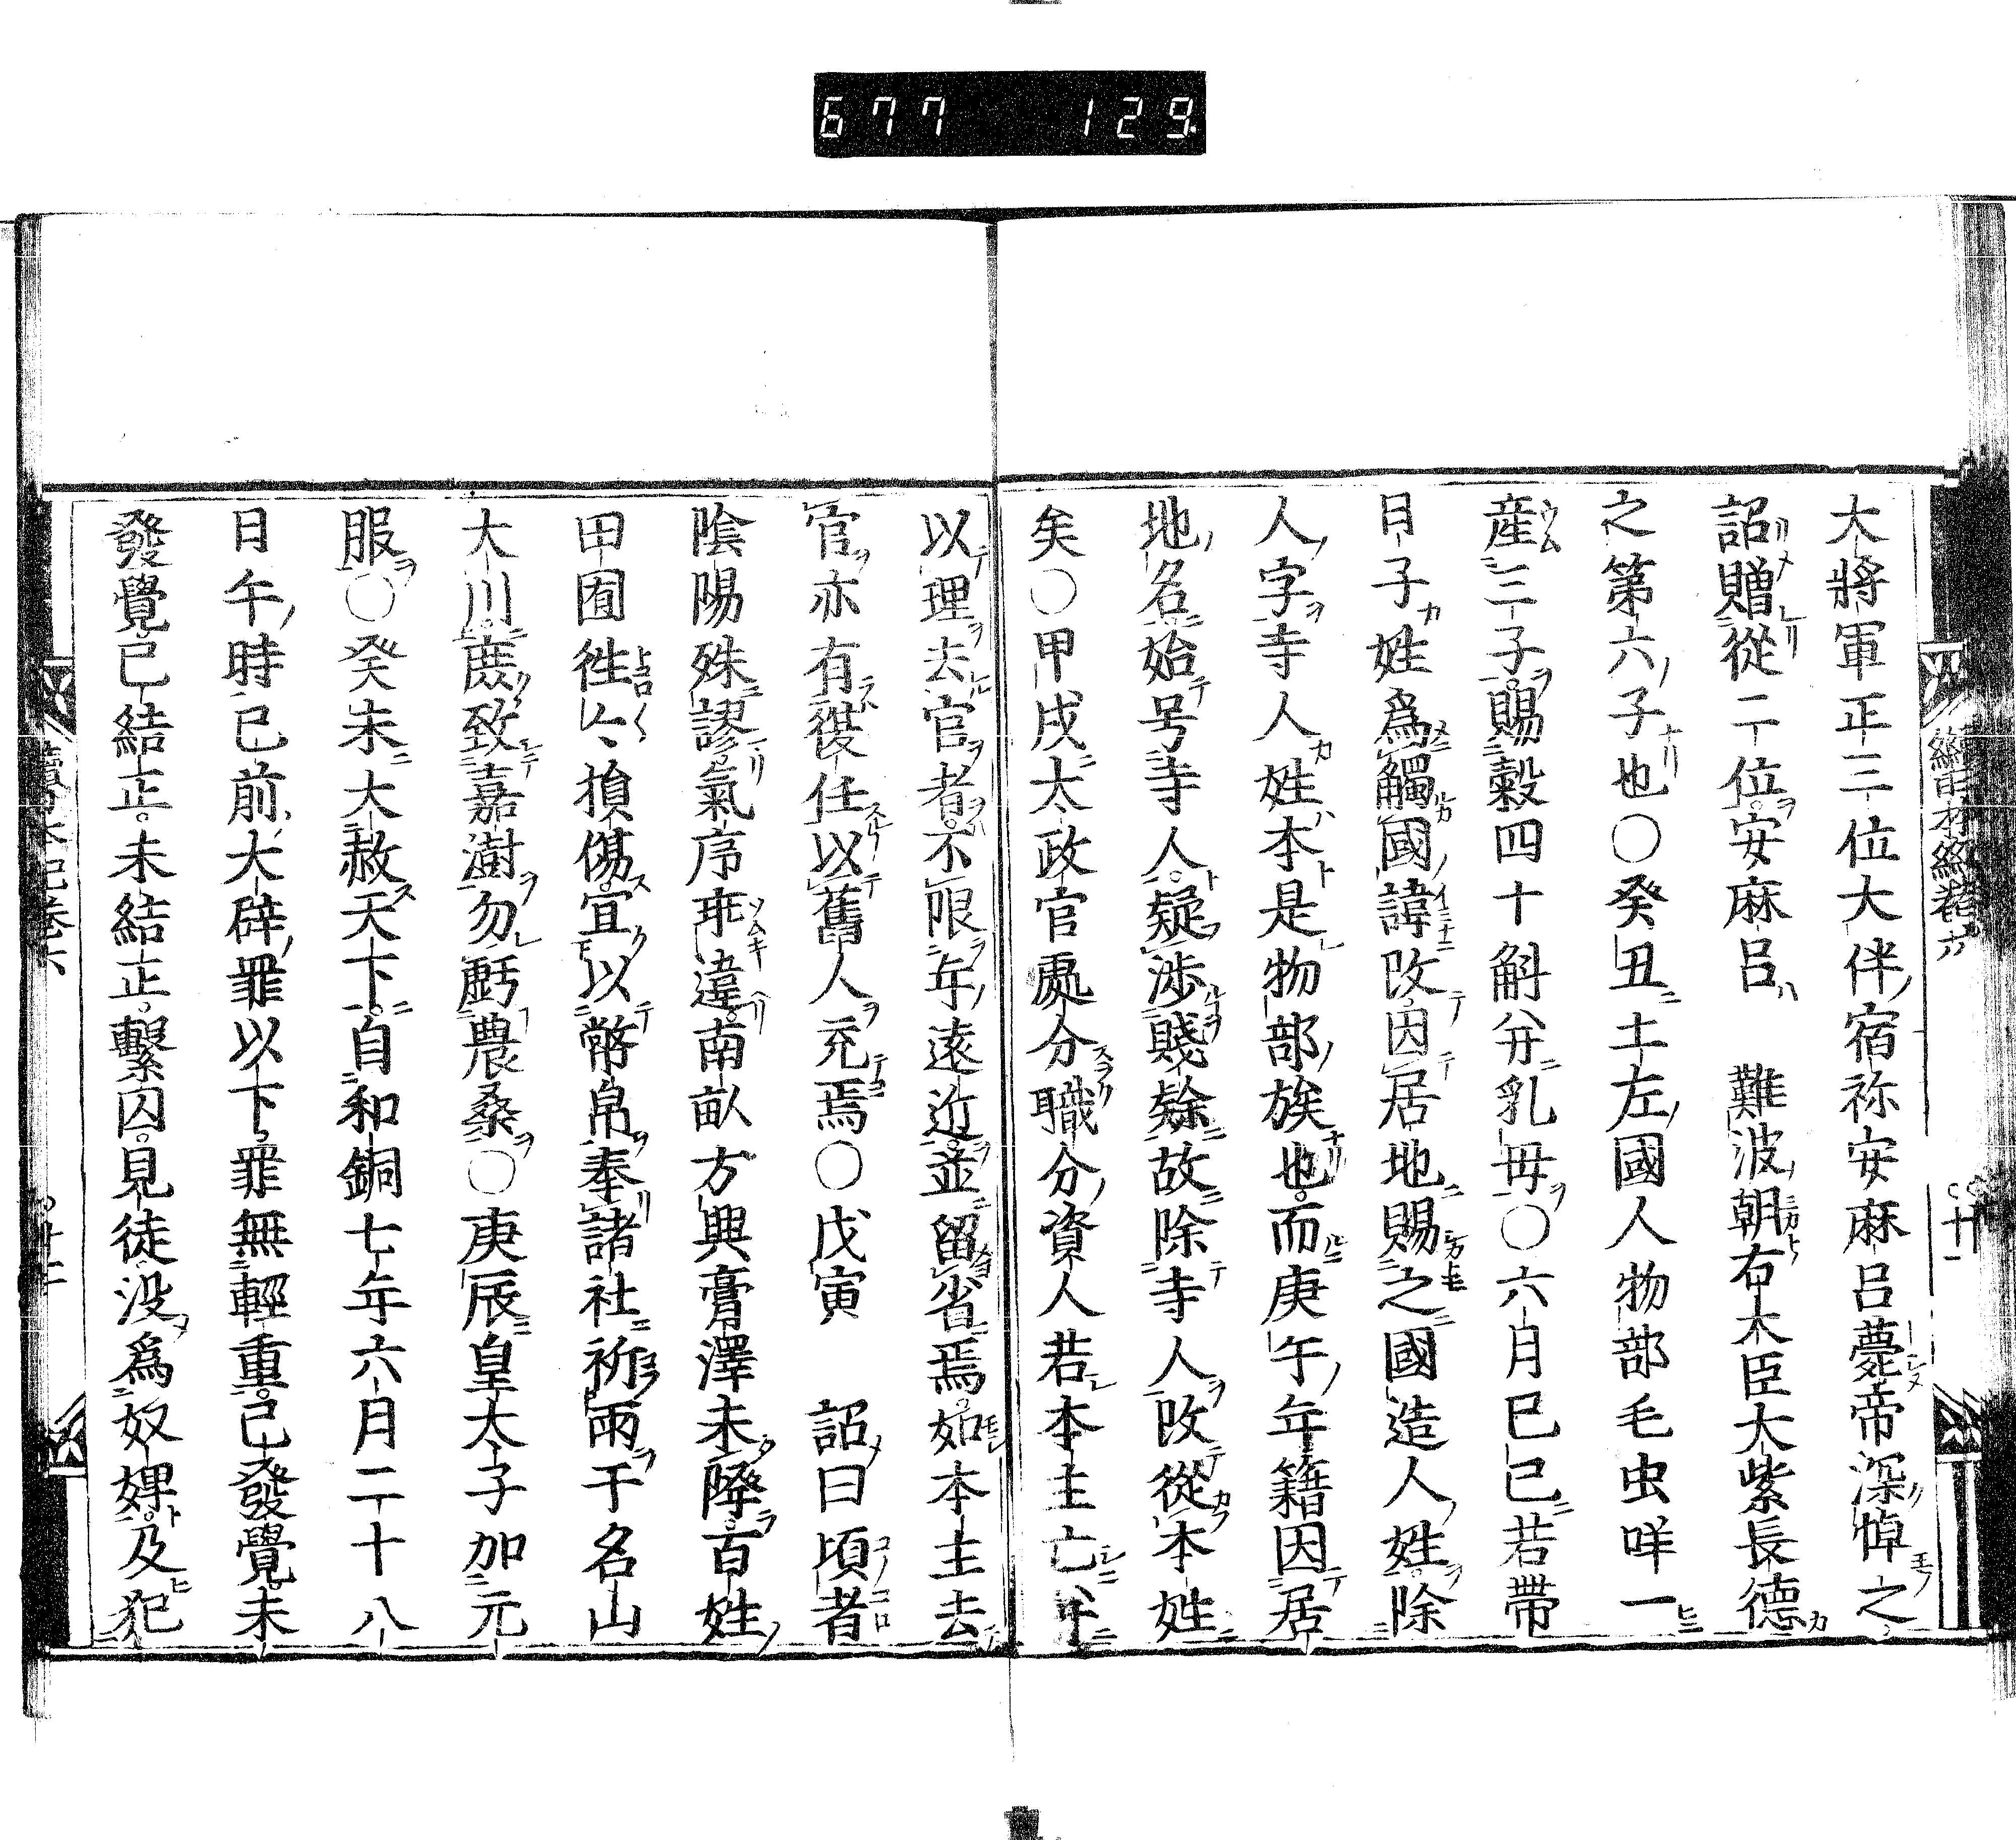 677 129
大將軍正三位大伴宿祢安麻呂薨帝深悼之
詔贈從二位安麻呂 難波朝右大臣大紫長德
之第六子也○癸丑土左國人物部毛虫咩一
産三子賜穀四十斛并乳母○六月己巳若帶
日子姓爲觸國諱改因居地賜之國造人姓除
人字寺人姓本是物部族也而庚午年籍因居
地名始号寺人疑涉賤隸故除寺人改從本姓
矣○甲戌太政官處分職分資人若本主亡
以理去官者不限年遠近並留省焉如本主去
官亦有復任以舊人充焉○戊寅 詔曰頃者
陰陽殊謬氣序乖違南畝方興膏澤未降百姓
田囿徃〻損傷宜以幣帛奉諸社祈雨于名山
大川庶致嘉澍勿虧農桑○庚辰皇太子加元
服○癸未大赦天下自和銅七年六月二十八
日午時已前大辟罪以下罪無輕重已發覺未
發覺已結正未結正繫囚見徒没爲奴婢及犯